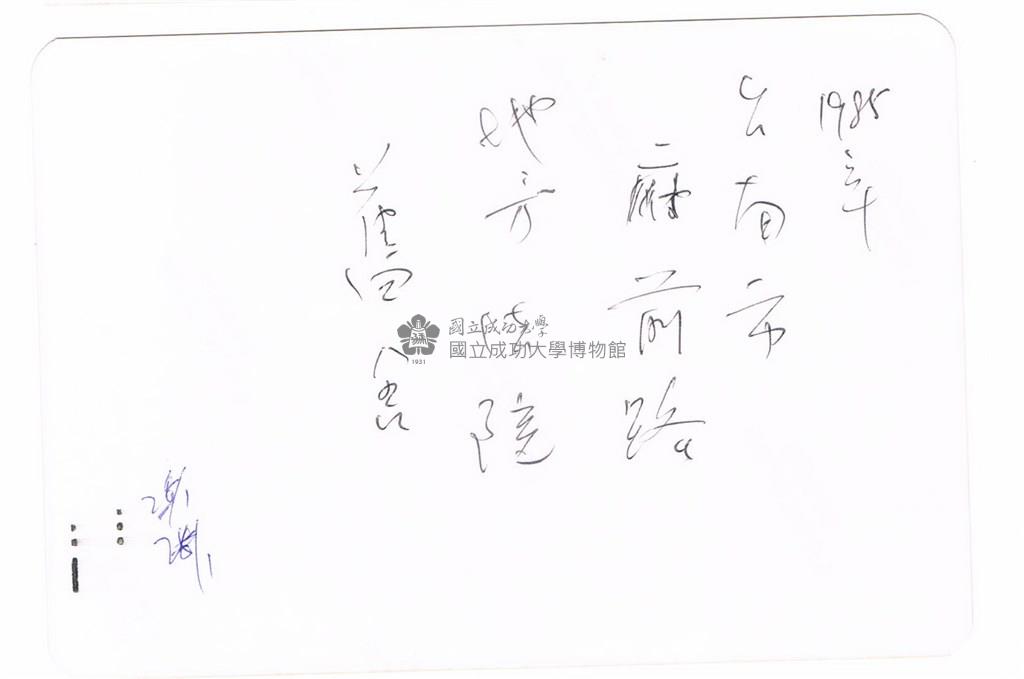 1985年
台南市
府前路
地方法院
舊舍
國立成功大學
國立成功大學博物館
1931